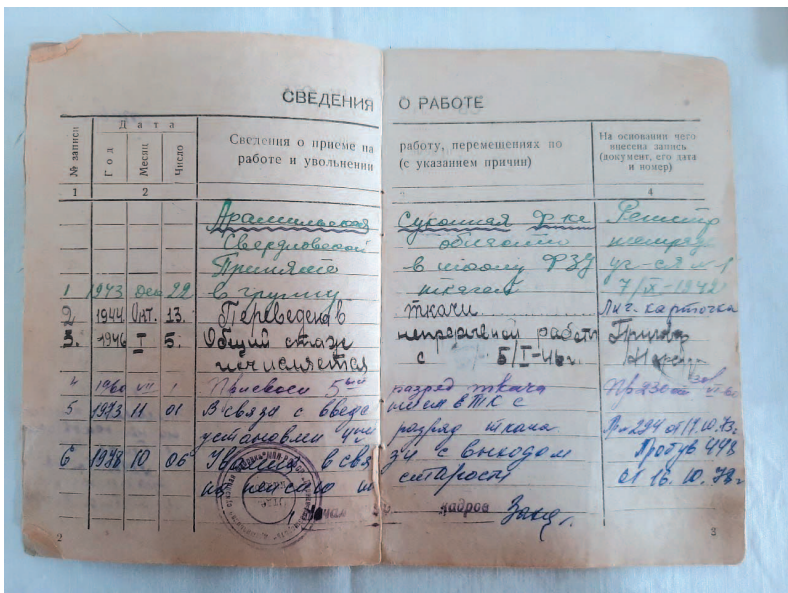 СВЕДЕНИЯ О РАБОТЕ
№ записи
Дата
Год
Месяц
Число
Сведения о приеме на работу, перемещениях по
работе и увольнении (с указанием причин)
На основании чего
внесена запись
(документ, его дата
и номер)
1 2 3 4
Арамильская Суконная ф-ка
Свердловской области
Принята в школу ФЗУ
1 1943 22 в группу 7/IX-1942
2 1944 Окт. 13. Переведена в ткачи Лич. карточка
3. 1946 I 5. Общий стаж непрерывной работы
исчисляется с 5/I-46г.
4 1 Присвоен 5 разряд ткача
5 1973 11 01 В связи с введением в ТК с
установлен разряд ткача Пр 294 от 17.10.73г.
6 1978 10 06 в связи с выходом
на пенсию по старости от 16.10.78г
кадров
2
3